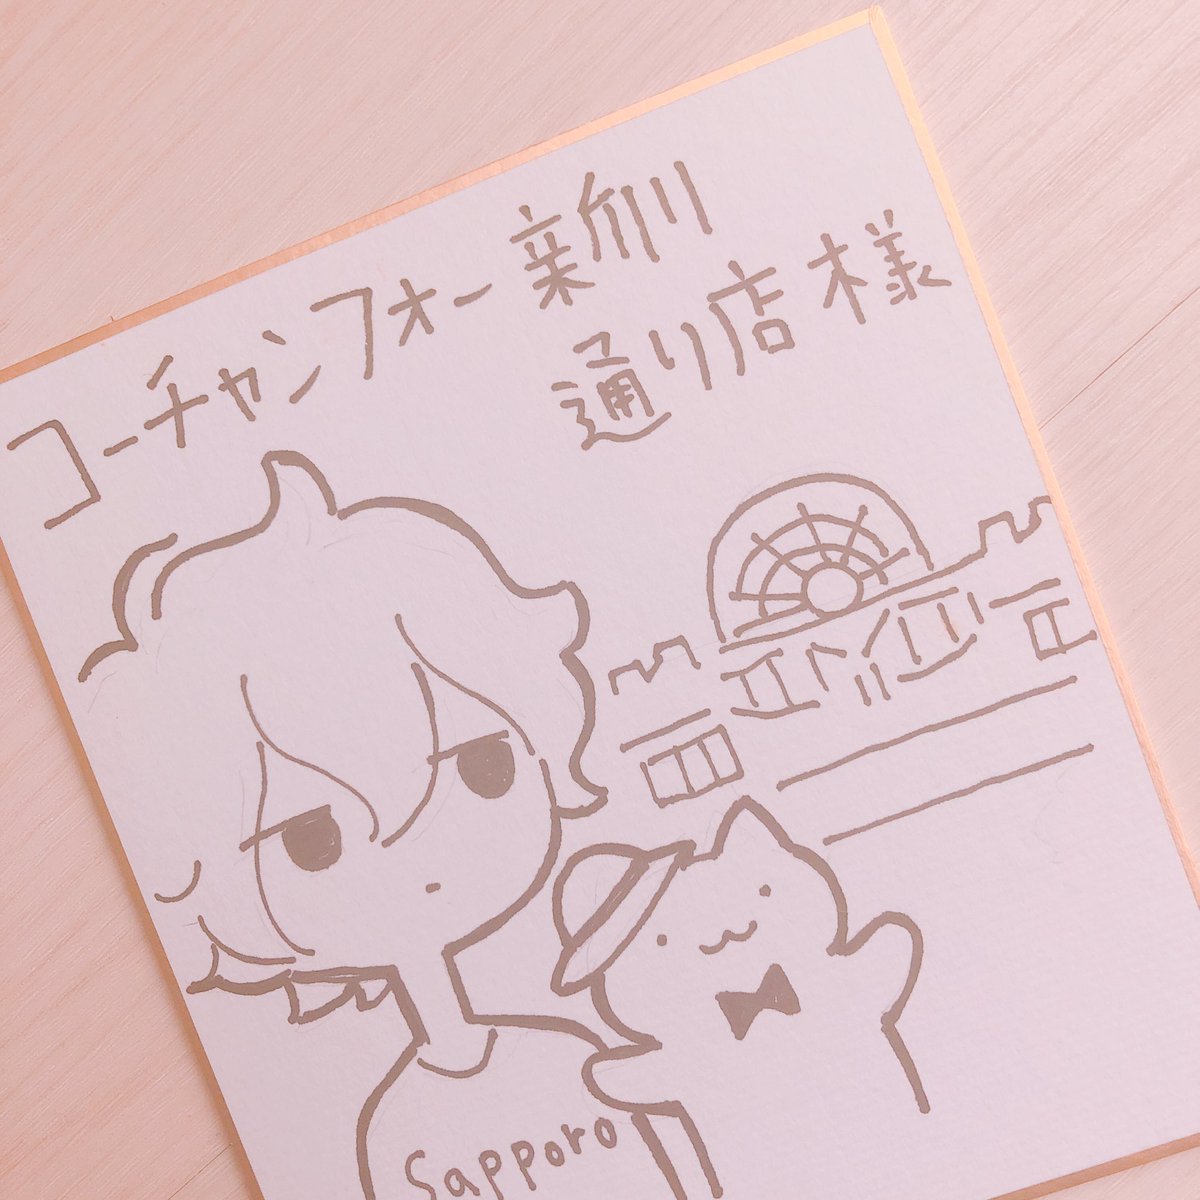 コーチャンフォー新川
通り店様
Sapporo